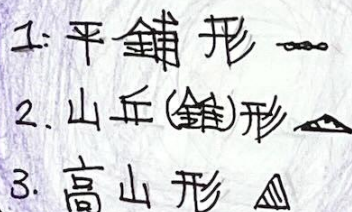 1: 平鋪形
2. 山丘(錐)形
3. 高山形